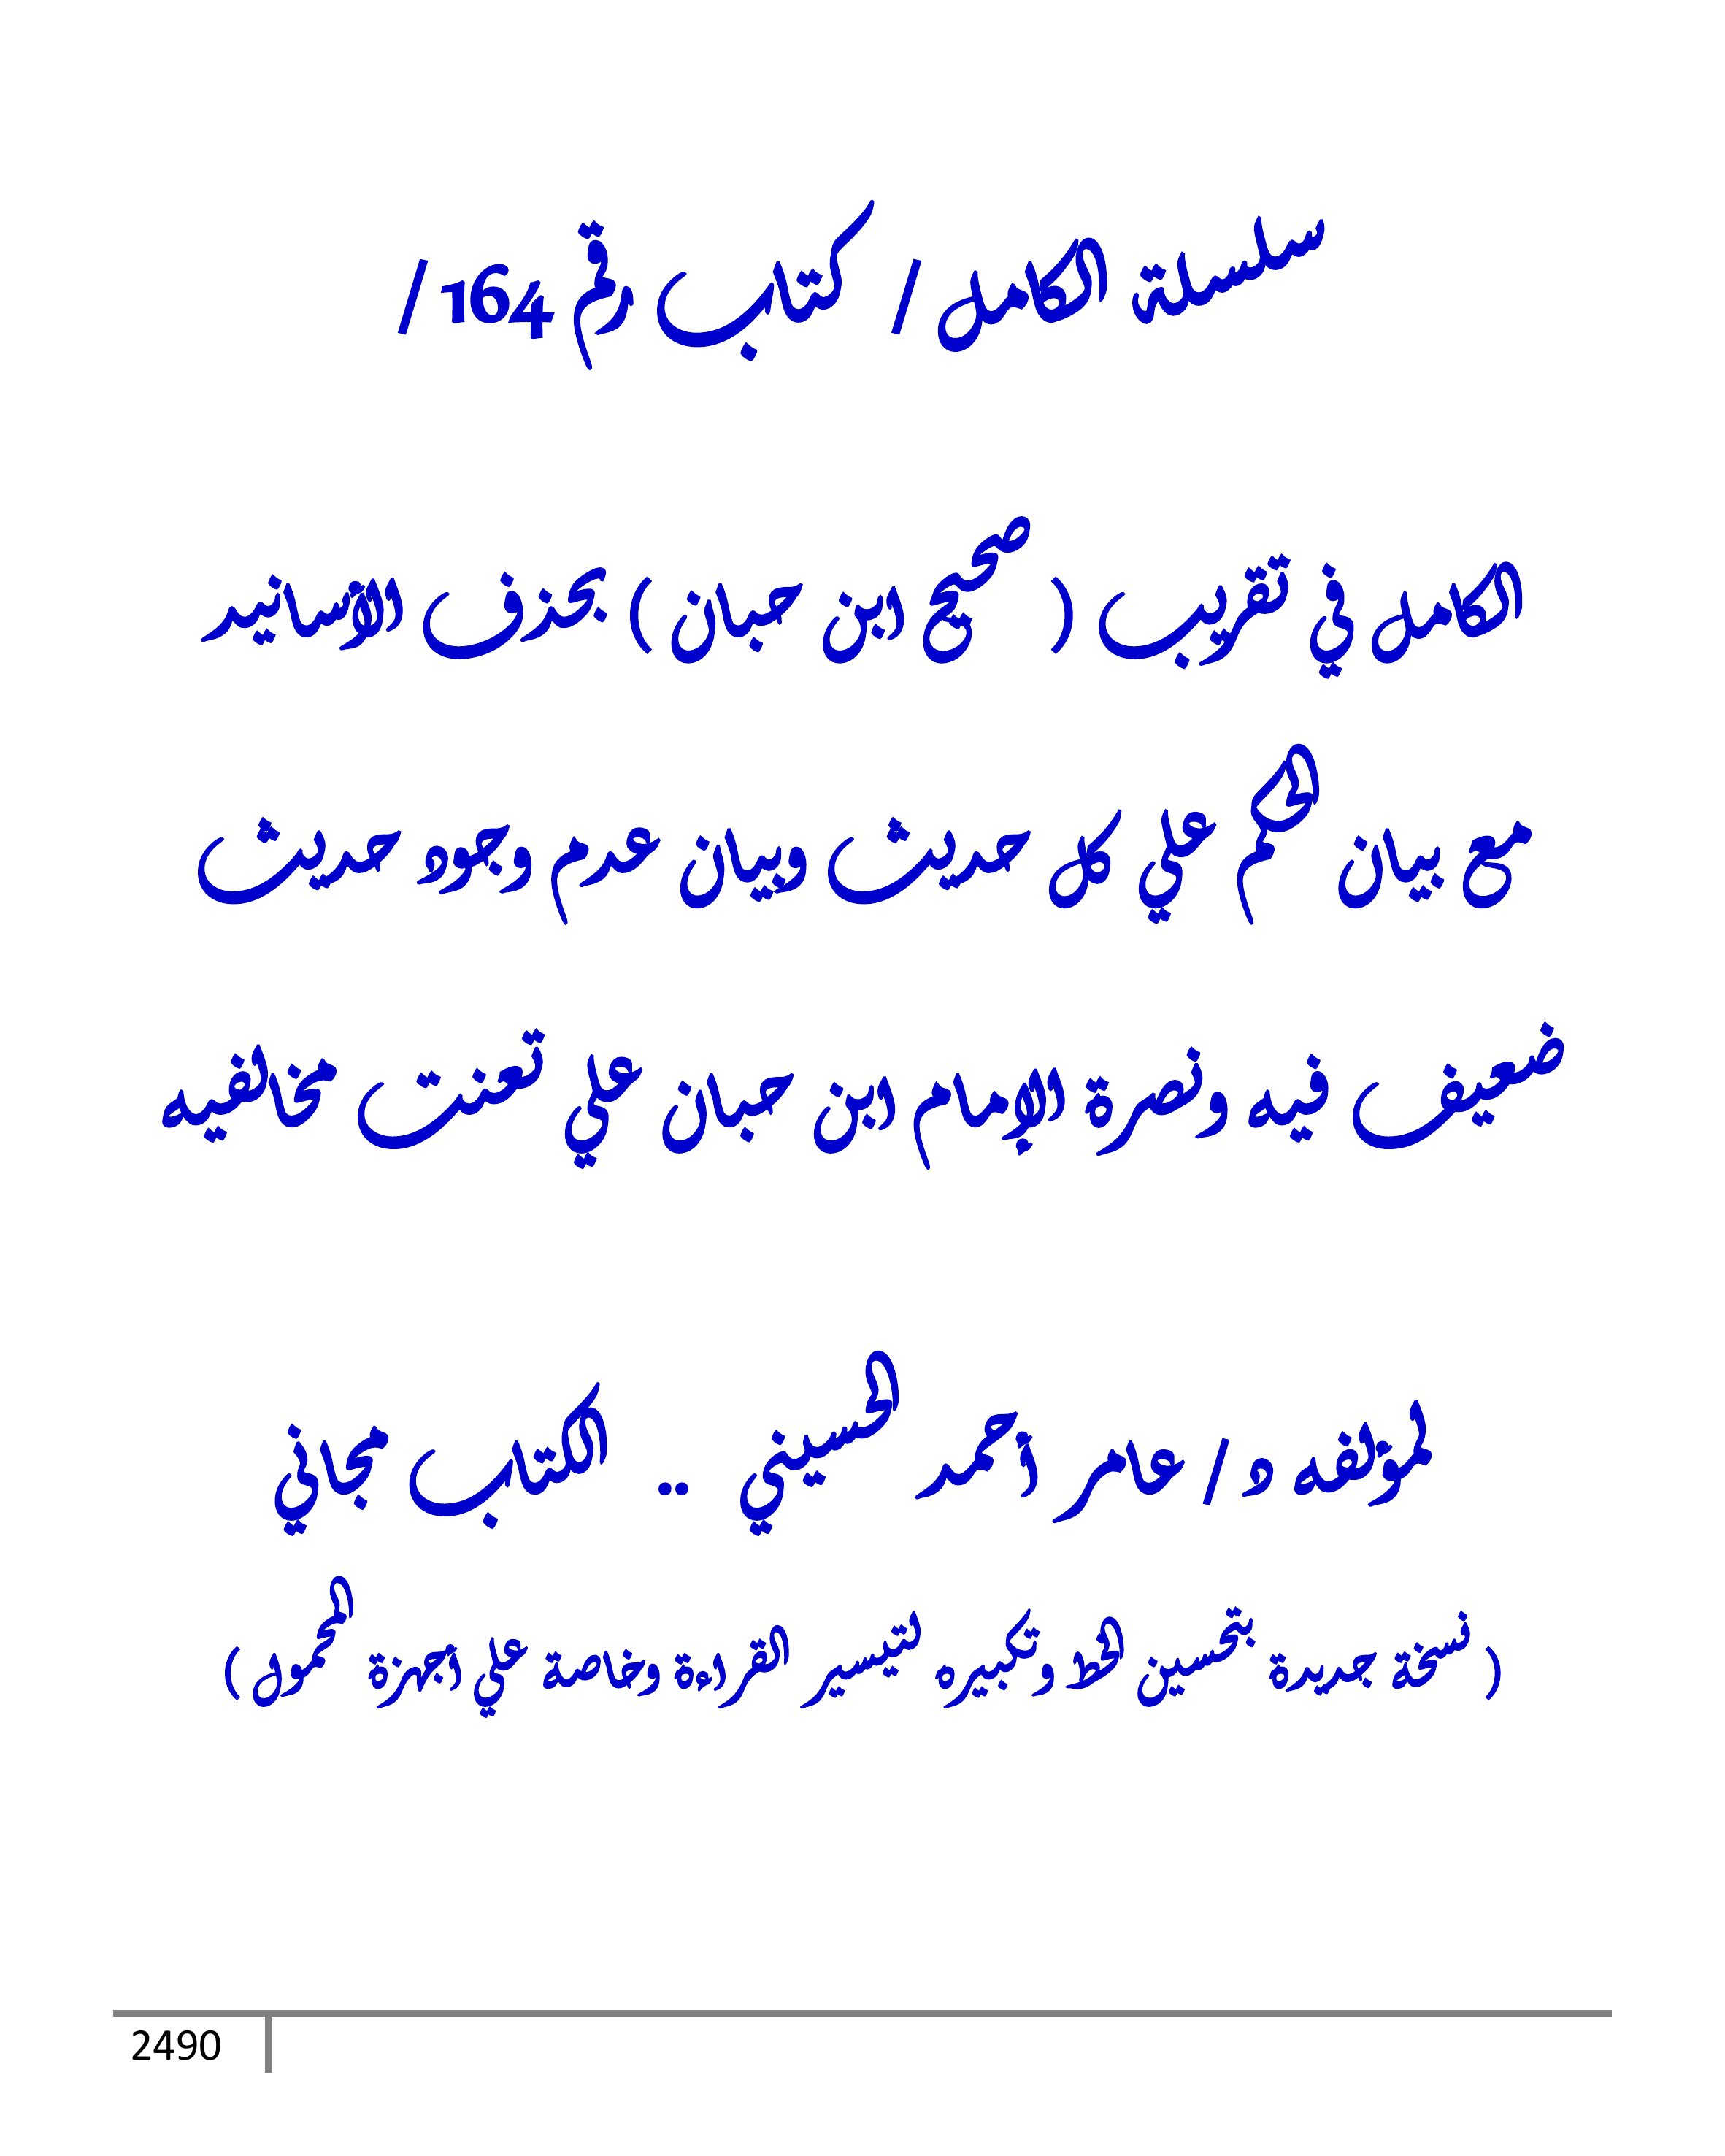 سلسلة الكامل / كتاب رقم 164 /
الكامل في تقريب ( صحيح ابن حبان ) بحذف الأسانيد
مع بيان الحكم علي كل حديث وبيان عدم وجود حديث
ضعيف فيه ونصرة الإمام ابن حبان علي تعنت مخالفيه
لمؤلفه د / عامر أحمد الحسيني .. الكتاب مجاني
( نسخة جديدة بتحسين الخط وتكبيره لتيسير القراءة وخاصة علي أجهزة المحمول )
2490